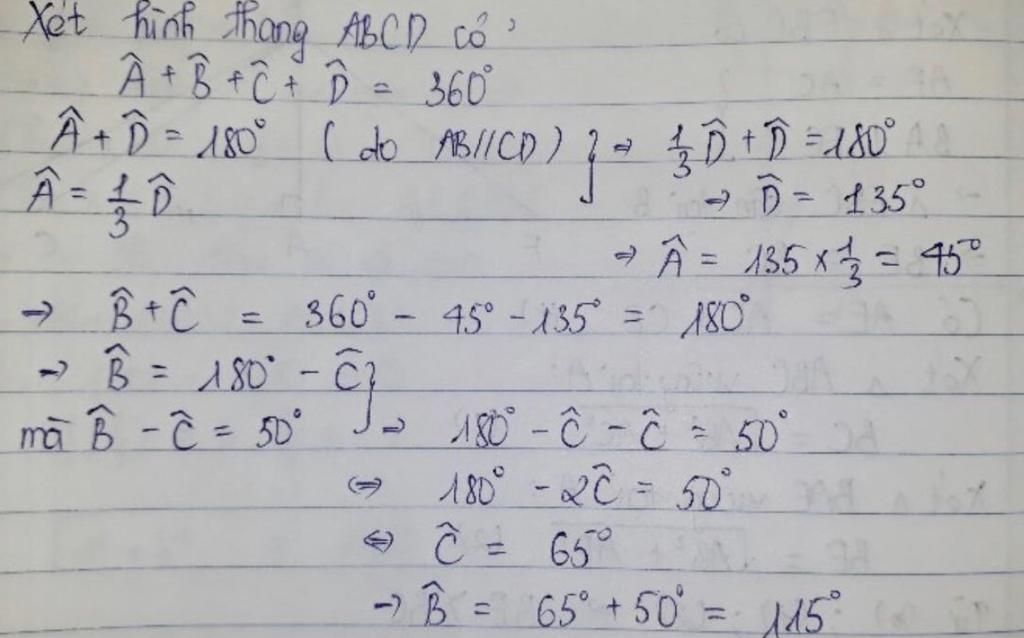 Xét hình thang ABCD có
Â + B̂ + Ĉ + D̂ = 360°
Â + D̂ = 180° ( do AB//CD ) } ⇒ 1/3 D̂ + D̂ = 180°
Â = 1/3 D̂ ⇒ D̂ = 135°
⇒ Â = 135 × 1/3 = 45°
→ B̂ + Ĉ = 360° - 45° - 135° = 180°
→ B̂ = 180° - Ĉ }
mà B̂ - Ĉ = 50° ⇒ 180° - Ĉ - Ĉ = 50°
⇔ 180° - 2Ĉ = 50°
⇔ Ĉ = 65°
→ B̂ = 65° + 50° = 115°